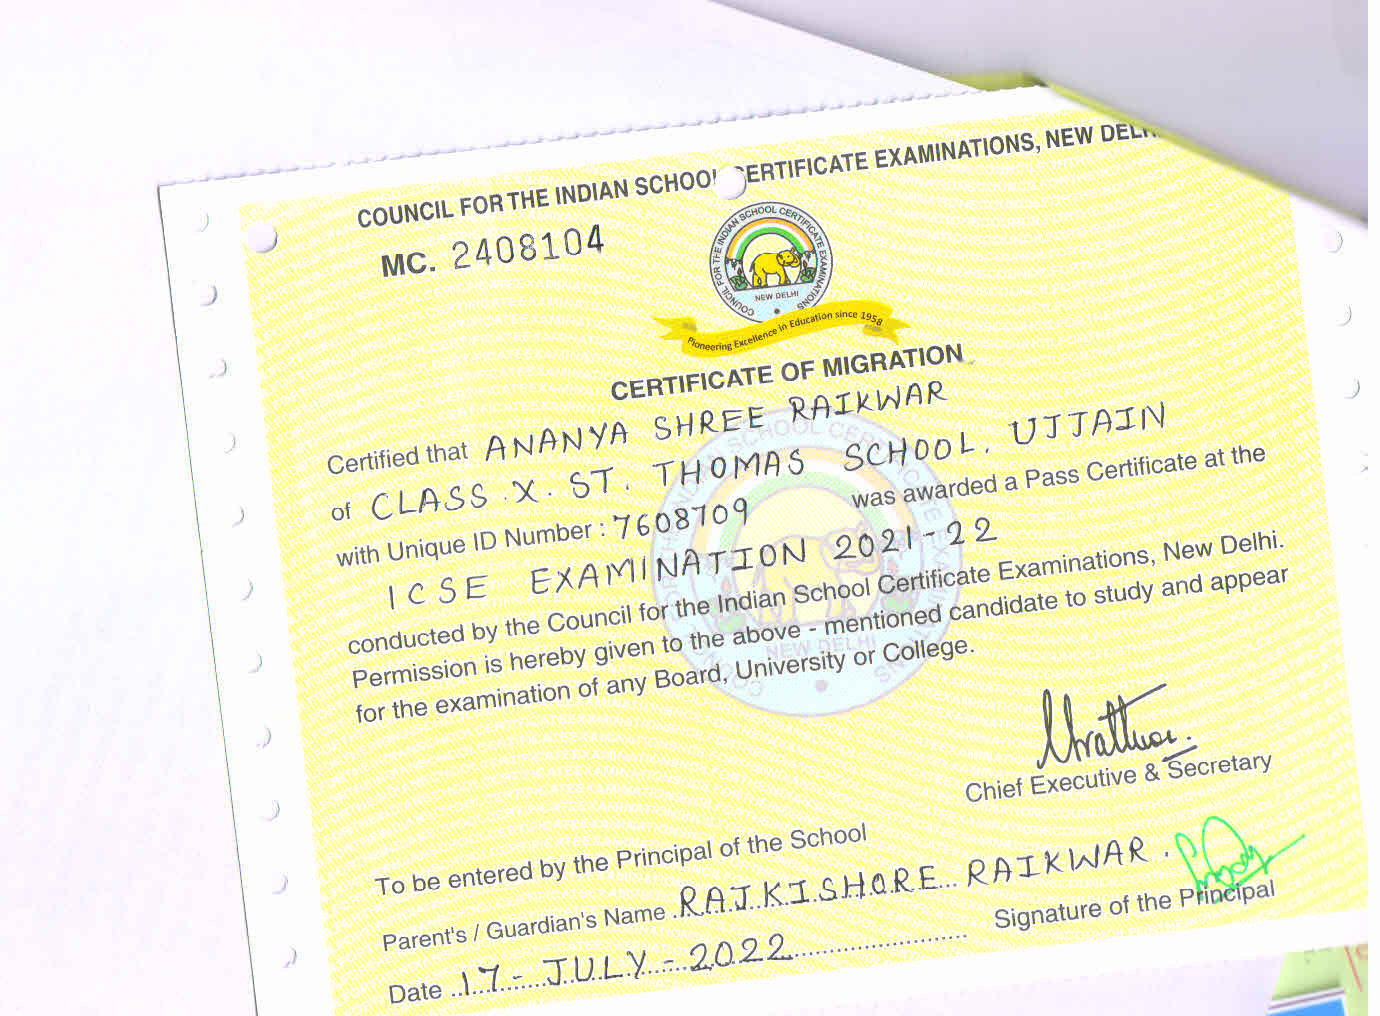 COUNCIL FOR THE INDIAN SCHOOL CERTIFICATE EXAMINATIONS, NEW
MC. 2408104
COUNCIL FOR THE INDIAN SCHOOL CERTIFICATE EXAMINATIONS
NEW DELHI
Pioneering Excellence in Education since 1958
CERTIFICATE OF MIGRATION
Certified that ANANYA SHREE RAIKWAR
of CLASS.X. ST. THOMAS SCHOOL. UJJAIN
with Unique ID Number : 7608709 was awarded a Pass Certificate at the
ICSE EXAMINATION 2021-22
conducted by the Council for the Indian School Certificate Examinations, New Delhi.
Permission is hereby given to the above - mentioned candidate to study and appear
for the examination of any Board, University or College.
NEW DELHI
Chief Executive & Secretary
To be entered by the Principal of the School
Parent's / Guardian's Name RAJKISHORE RAIKWAR.
Signature of the Principal
Date 17-JULY-2022